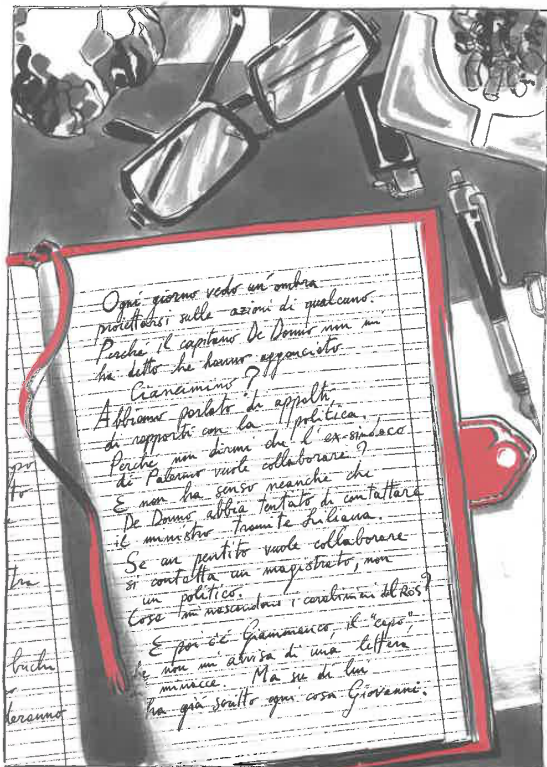 Ogni giorno vedo un'ombra
proiettarsi sulle azioni di qualcuno.
Perché il capitano De Donno non mi
ha detto che hanno agganciato
Ciancimino?
Abbiamo parlato di appalti,
di rapporti con la politica.
Perché non dirmi che l'ex-sindaco
di Palermo vuole collaborare?
E non ha senso neanche che
De Donno abbia tentato di contattare
il ministro tramite Liliana.
Se un pentito vuole collaborare
si contatta un magistrato, non
un politico.
Cosa mi nascondono i carabinieri del ROS?
E poi c'è Giammanco, il "capo",
che non mi avvisa di una lettera
minacce. Ma su di lui
ha già scritto ogni cosa Giovanni.
po
to
tra
buchi
deranno